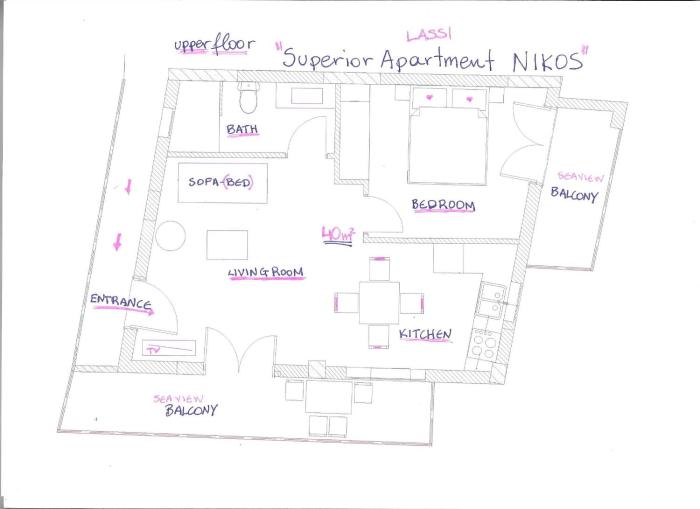 LASSI
upper floor
"Superior Apartment NIKOS"
BATH
SOFA-(BED)
SEAVIEW
BALCONY
BEDROOM
40m²
LIVING ROOM
ENTRANCE
KITCHEN
TV
SEAVIEW
BALCONY